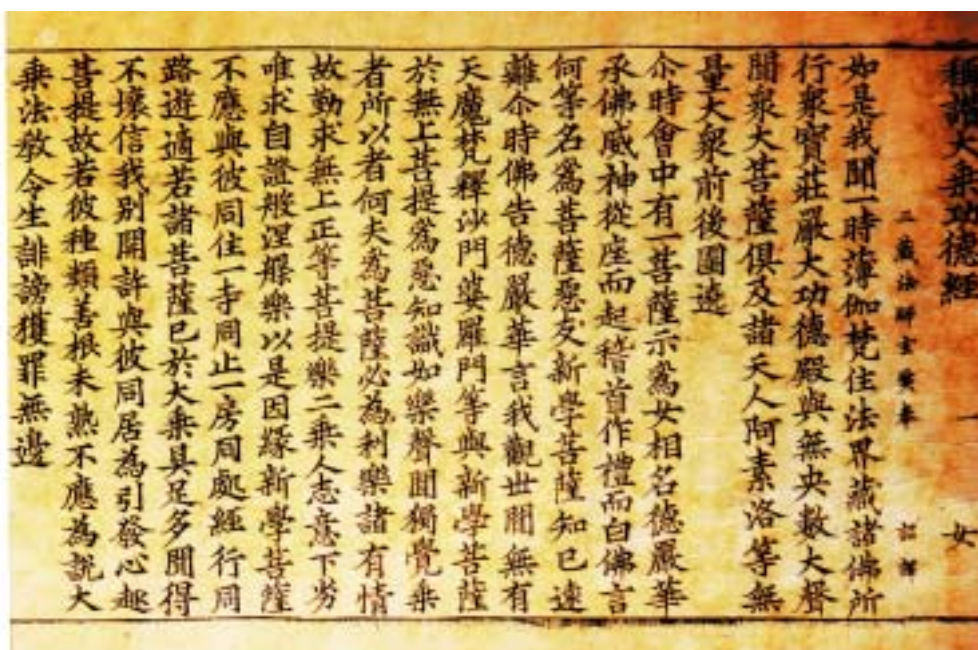 稱讚大乗功德經 一 女
三藏法師玄奘奉 詔譯
如是我聞一時薄伽梵住法界藏諸佛所
行衆寶莊嚴大功德殿與無央數大聲
聞衆大菩薩俱及諸天人阿素洛等無
量大衆前後圍遶
尒時會中有一菩薩示爲女相名德嚴華
承佛威神從座而起稽首作禮而白佛言
何等名爲菩薩惡友新學菩薩知已速
離尒時佛告德嚴華言我觀世間無有
天魔梵釋沙門婆羅門等與新學菩薩
於無上菩提爲惡知識如樂聲聞獨覺乗
者所以者何夫爲菩薩必爲利樂諸有情
故勤求無上正等菩提樂二乗人志意下劣
唯求自證般涅槃樂以是因緣新學菩薩
不應與彼同住一寺同止一房同處經行同
路遊適若諸菩薩已於大乗具足多聞得
不壞信我別開許與彼同居為引發心趣
菩提故若彼種類善根未熟不應為說大
乗法教令生誹謗獲罪無邊